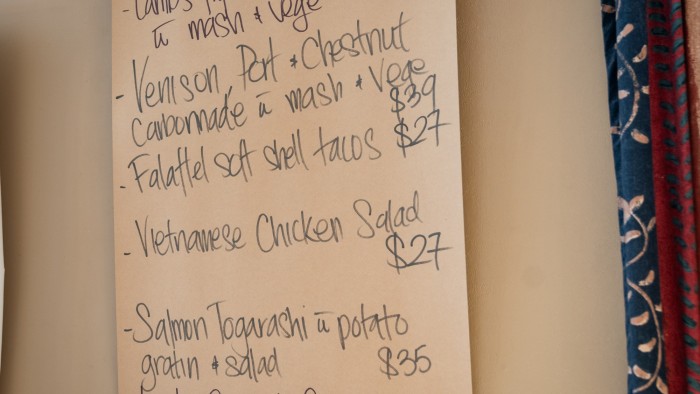 ū mash & Vege
- Venison, Port & Chestnut
Carbonnade ū mash & Vege
$39
- Falaffel soft shell tacos $27
- Vietnamese Chicken Salad
$27
- Salmon Togarashi ū potato
gratin & salad $35